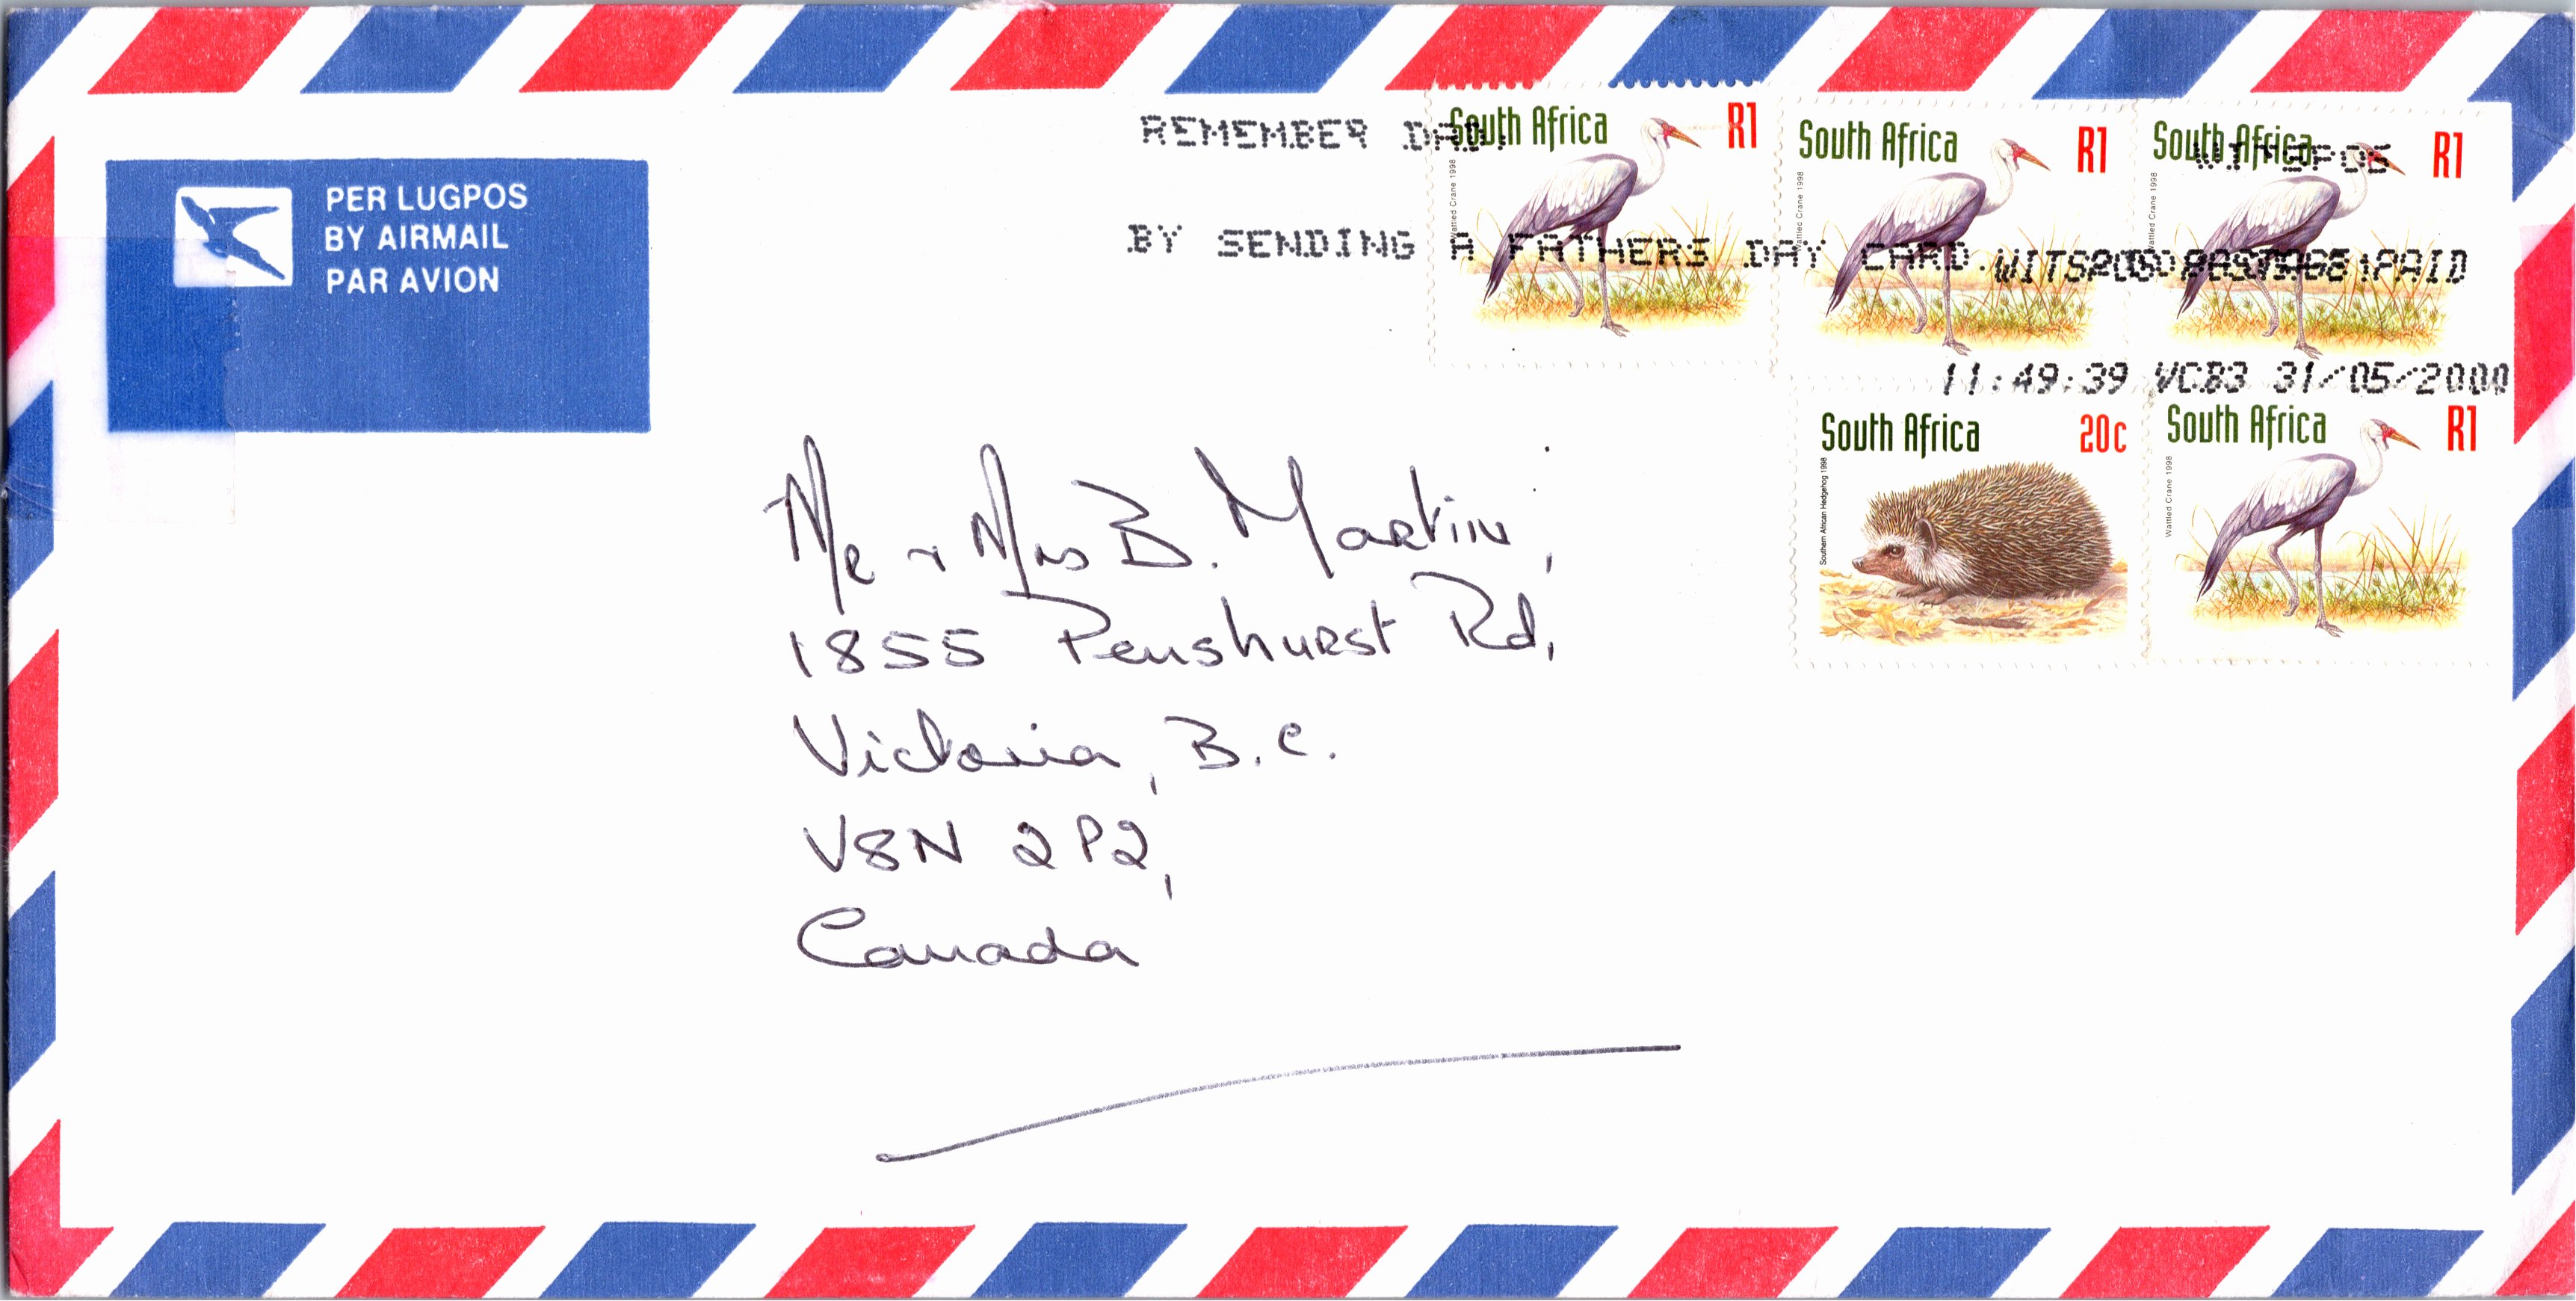 PER LUGPOS
BY AIRMAIL
PAR AVION
REMEMBER DAD!
BY SENDING A FATHERS DAY CARD.
WITSPOS
WITSPOS POSTAGE PAID
11:49:39 VCB3 31/05/2000
South Africa R1
Wattled Crane 1998
South Africa R1
Wattled Crane 1998
South Africa R1
Wattled Crane 1998
South Africa 20c
Southern African Hedgehog 1998
South Africa R1
Wattled Crane 1998
Mr + Mrs B. Martin,
1855 Penshurst Rd,
Victoria, B.C.
V8N 2P2,
Canada